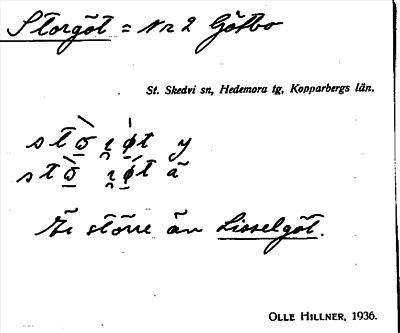 Storgöt = Nr 2 Götbo
St. Skedvi sn, Hedemora tg, Kopparbergs län.
Är större än Lisselgöt.
OLLE HILLNER, 1936.